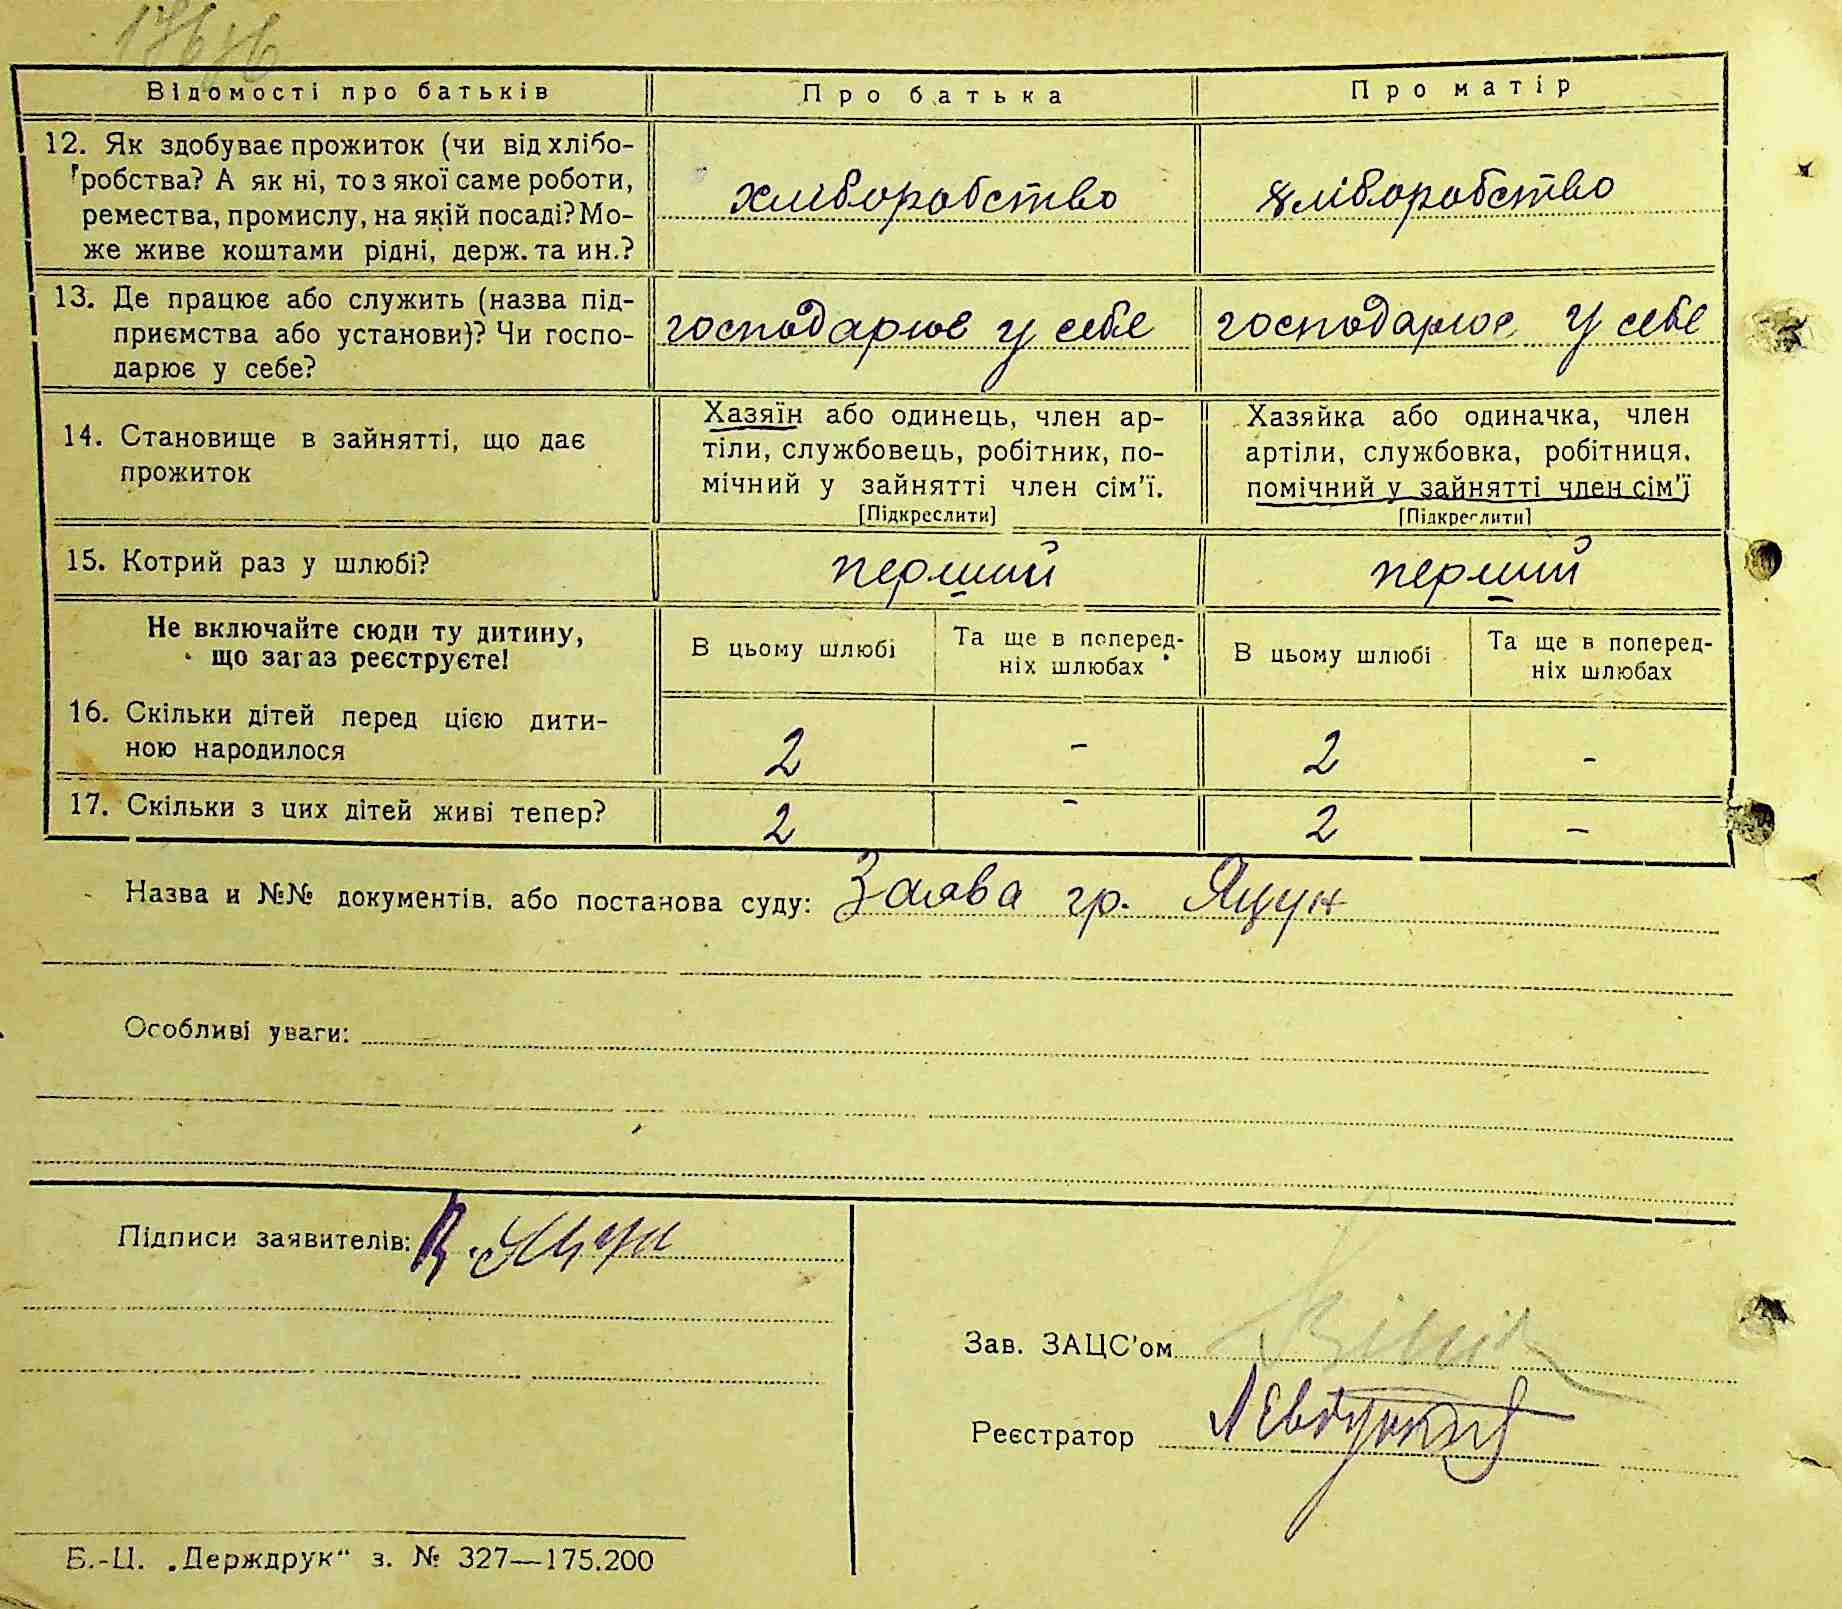 Відомості про батьків Про батька Про матір
12. Як здобуває прожиток (чи від хлібо-
робства? А як ні, то з якої саме роботи,
ремества, промислу, на якій посаді? Мо-
же живе коштами рідні, держ. та ин.?
хліборобство хліборобство
13. Де працює або служить (назва під-
приємства або установи)? Чи госпо-
дарює у себе?
господарює у себе господарює у себе
14. Становище в зайнятті, що дає
прожиток
Хазяїн або одинець, член ар-
тіли, службовець, робітник, по-
мічний у зайнятті член сім'ї.
[Підкреслити]
Хазяйка або одиначка, член
артіли, службовка, робітниця,
помічний у зайнятті член сім'ї
[Підкреслити]
15. Котрий раз у шлюбі? перший перший
Не включайте сюди ту дитину,
що зараз реєструєте!
В цьому шлюбі
Та ще в поперед-
ніх шлюбах
В цьому шлюбі
Та ще в поперед-
ніх шлюбах
16. Скільки дітей перед цією дити-
ною народилося
2 - 2 -
17. Скільки з цих дітей живі тепер? 2 - 2 -
Назва и №№ документів, або постанова суду: Заява гр. Яцун
Особливі уваги:
Підписи заявителів: Яцун
Зав. ЗАЦС'ом
Реєстратор
Б.-Ц. „Держдрук" з. № 327—175.200